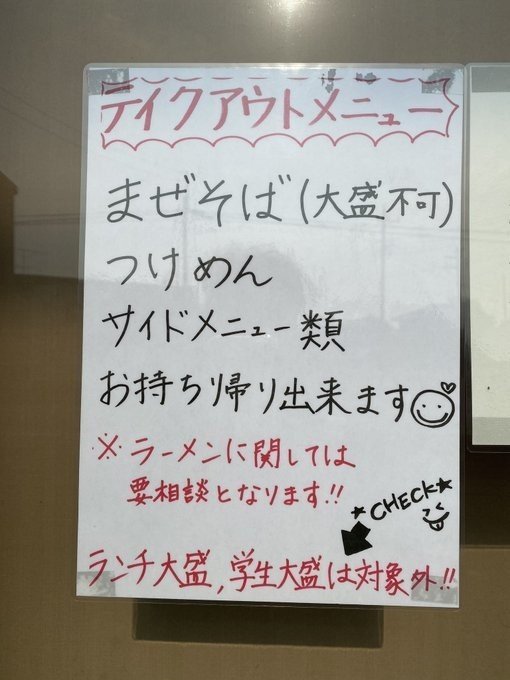 テイクアウトメニュー
まぜそば(大盛不可)
つけめん
サイドメニュー類
お持ち帰り出来ます
※ラーメンに関しては
要相談となります!!
★CHECK★
ランチ大盛,学生大盛は対象外!!